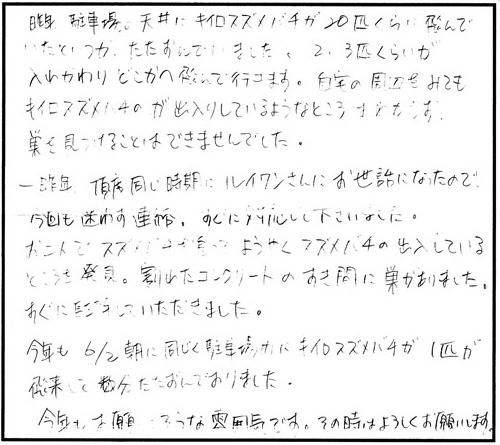 昨年 駐車場の天井に キイロスズメバチが 20匹くらい 飛んで
いたというか、たたずんでいました。 2、3匹くらいが
入れかわり どこかへ飛んで行きます。 自宅の 周辺をみても
キイロスズメバチの が出入りしているようなところ
巣を見つけることはできませんでした。
一昨年、頃 同じ時期に ルイワンさんに お世話になったので、
今回も迷わず連絡、すぐに対応して下さいました。
スズメバチを ようやく スズメバチの出入している
ところを発見。 割れたコンクリートの すき間に 巣がありました。
すぐに していただきました。
今年も 6/2 朝に同じく駐車場 に キイロスズメバチが 1匹が
飛来して 数分 たたずんでおりました。
今年も お願 そうな雰囲気です。 その時はよろしくお願いします